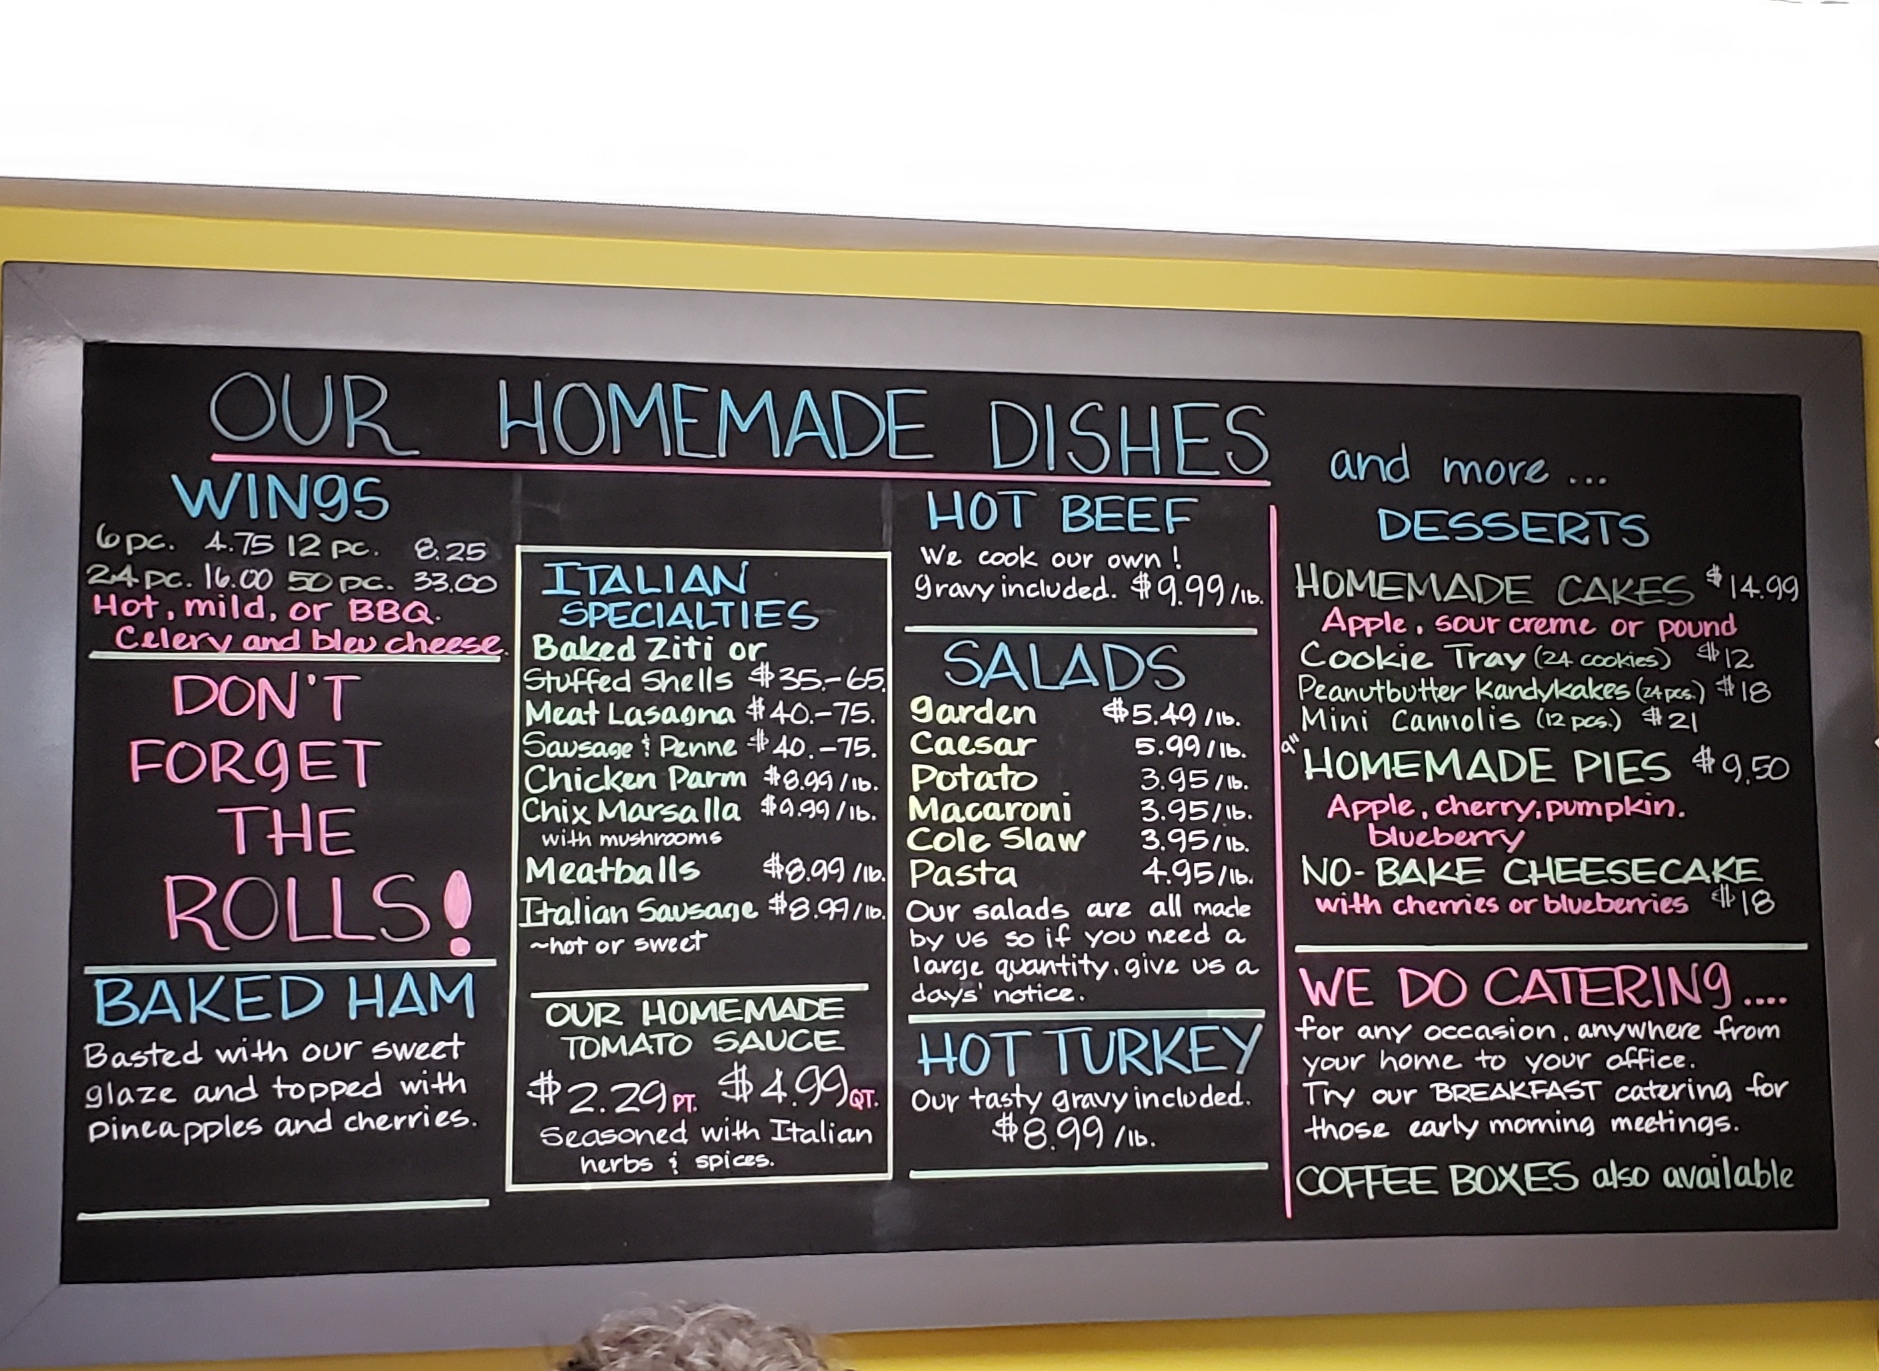 OUR HOMEMADE DISHES
and more ...
WINGS
6 pc. 4.75 12 pc. 8.25
24 pc. 16.00 50 pc. 33.00
Hot, mild, or BBQ.
Celery and bleu cheese.
DON'T
FORGET
THE
ROLLS!
BAKED HAM
Basted with our sweet
glaze and topped with
pineapples and cherries.
ITALIAN
SPECIALTIES
Baked Ziti or
Stuffed Shells $35.-65.
Meat Lasagna $40.-75.
Sausage & Penne $40.-75.
Chicken Parm $8.99/lb.
Chix Marsalla $9.99/lb.
with mushrooms
Meatballs $8.99/lb.
Italian Sausage $8.99/lb.
~hot or sweet
OUR HOMEMADE
TOMATO SAUCE
$2.29 PT. $4.99 QT.
Seasoned with Italian
herbs & spices.
HOT BEEF
We cook our own!
gravy included. $9.99/lb.
SALADS
garden $5.49/lb.
Caesar 5.99/lb.
Potato 3.95/lb.
Macaroni 3.95/lb.
Cole Slaw 3.95/lb.
Pasta 4.95/lb.
Our salads are all made
by us so if you need a
large quantity, give us a
days' notice.
HOT TURKEY
Our tasty gravy included.
$8.99/lb.
DESSERTS
HOMEMADE CAKES $14.99
Apple, sour creme or pound
Cookie Tray (24 cookies) $12
Peanutbutter Kandykakes (24 pcs.) $18
Mini Cannolis (12 pcs.) $21
9" HOMEMADE PIES $9.50
Apple, cherry, pumpkin.
blueberry
NO-BAKE CHEESECAKE
with cherries or blueberries $18
WE DO CATERING....
for any occasion, anywhere from
your home to your office.
Try our BREAKFAST catering for
those early morning meetings.
COFFEE BOXES also available